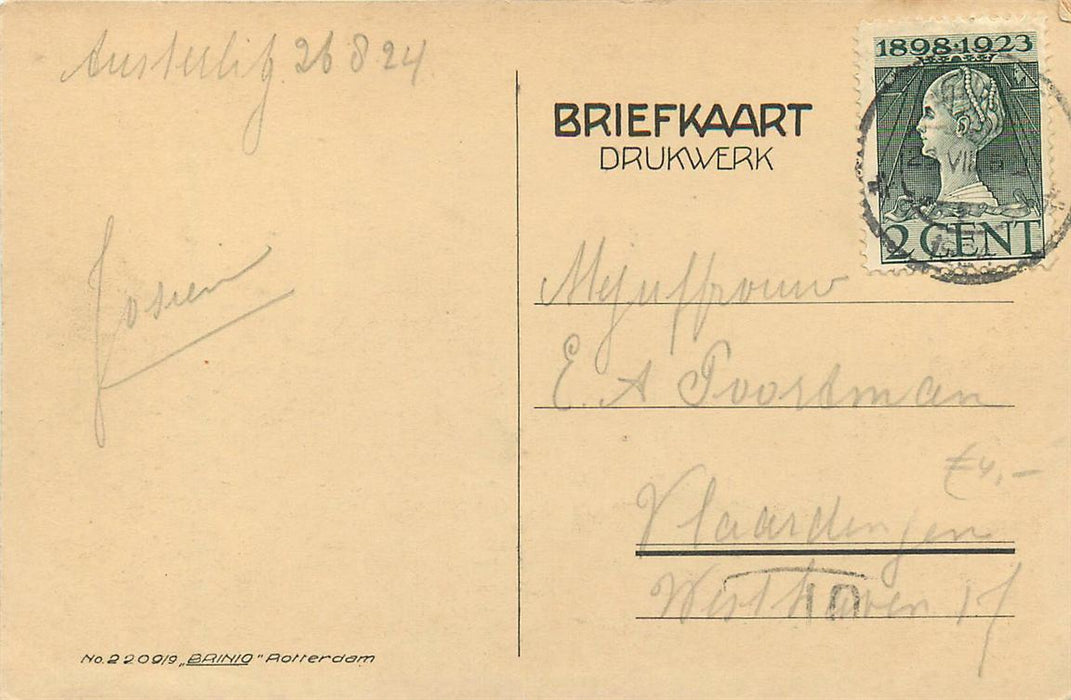 26 8 24
Josien
BRIEFKAART
DRUKWERK
1898·1923
2 CENT
Mejuffrouw
E. A Poortman
€4,-
Vlaardingen
Westhaven
10
No. 2209/9 „BRINIO" Rotterdam